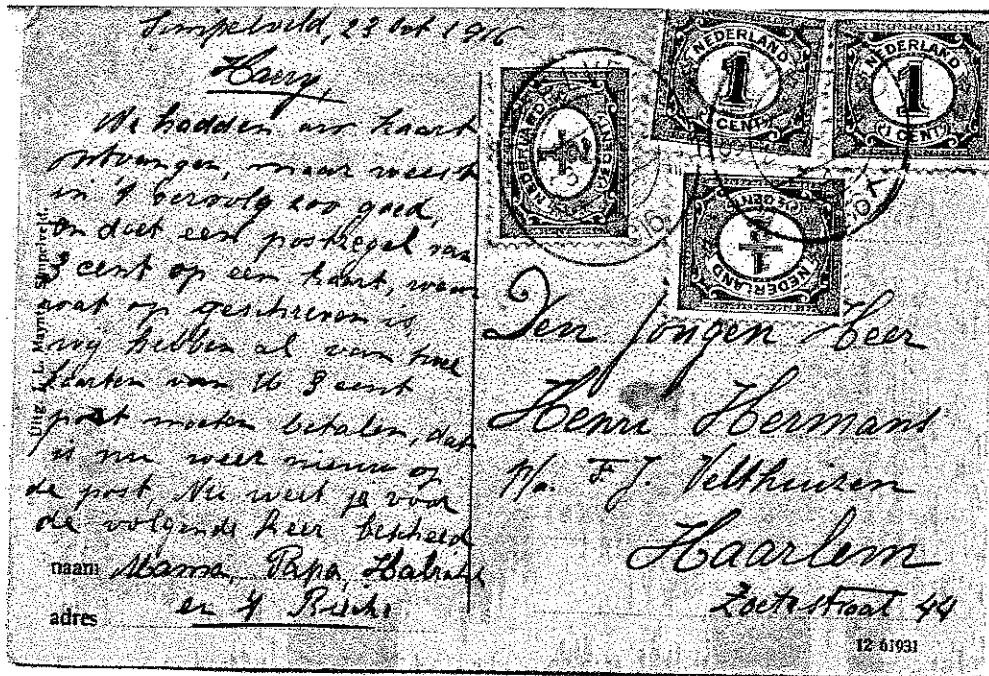 Simpelveld, 23 Oct 1916
Harry,
We hadden uw kaart
ontvangen, maar weest
in 't vervolg zoo goed,
en doet een postzegel van
3 cent op een kaart, waar
wat op geschreven is
wij hebben al van twee
kaarten van 16 3 cent
post moeten betalen, dat
is nu weer nieuw op
de post, Nu weet je voor
de volgende keer bescheid
naam Mama, Papa,
adres en
Uitg. J. L. Maynts Simpelveld.
NEDERLAND
1
CENT
NEDERLAND
1
(1 CENT)
NEDERLAND
½
NEDERLAND
½
Den jongen Heer
Henri Hermans
p/a. F. J. Velthuizen
Haarlem
Zoetestraat 44
12 61931